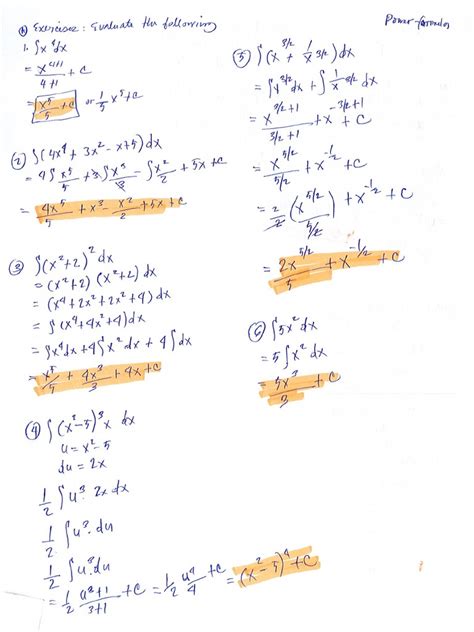 Power-formulas
Ⓐ Exercises: Evaluate the following
1. ∫x⁴dx
= x⁴⁺¹/4+1 + C
= x⁵/5 + C or 1/5 x⁵ + C
② ∫(4x⁴ + 3x² - x + 5) dx
= 4∫x⁵/5 + 3∫x³/3 - ∫x²/2 + 5x + C
= 4x⁵/5 + x³ - x²/2 + 5x + C
③ ∫(x²+2)² dx
= (x²+2)(x²+2) dx
= (x⁴ + 2x² + 2x² + 4) dx
= ∫(x⁴ + 4x² + 4) dx
= ∫x⁴dx + 4∫x² dx + 4∫dx
= x⁵/5 + 4x³/3 + 4x + C
④ ∫(x²-5)³ x dx
u = x² - 5
du = 2x
1/2 ∫u³ 2x dx
1/2 ∫u³ · du
1/2 ∫u³ · du
= 1/2 u³⁺¹/3+1 + C = 1/2 u⁴/4 + C = (x² - 5)⁴ + C
⑤ ∫(x^3/2 + 1/x 3/2) dx
= ∫x^3/2 dx + ∫1/x 3/2 dx
= x^3/2+1 / 3/2+1 + x^-3/2+1 + C
= x^5/2 / 5/2 + x^-1/2 + C
= 2/2 (x^5/2 / 5/2) + x^-1/2 + C
= 2x^5/2 / 5 + x^-1/2 + C
⑥ ∫5x² dx
= 5∫x² dx
= 5x³/3 + C